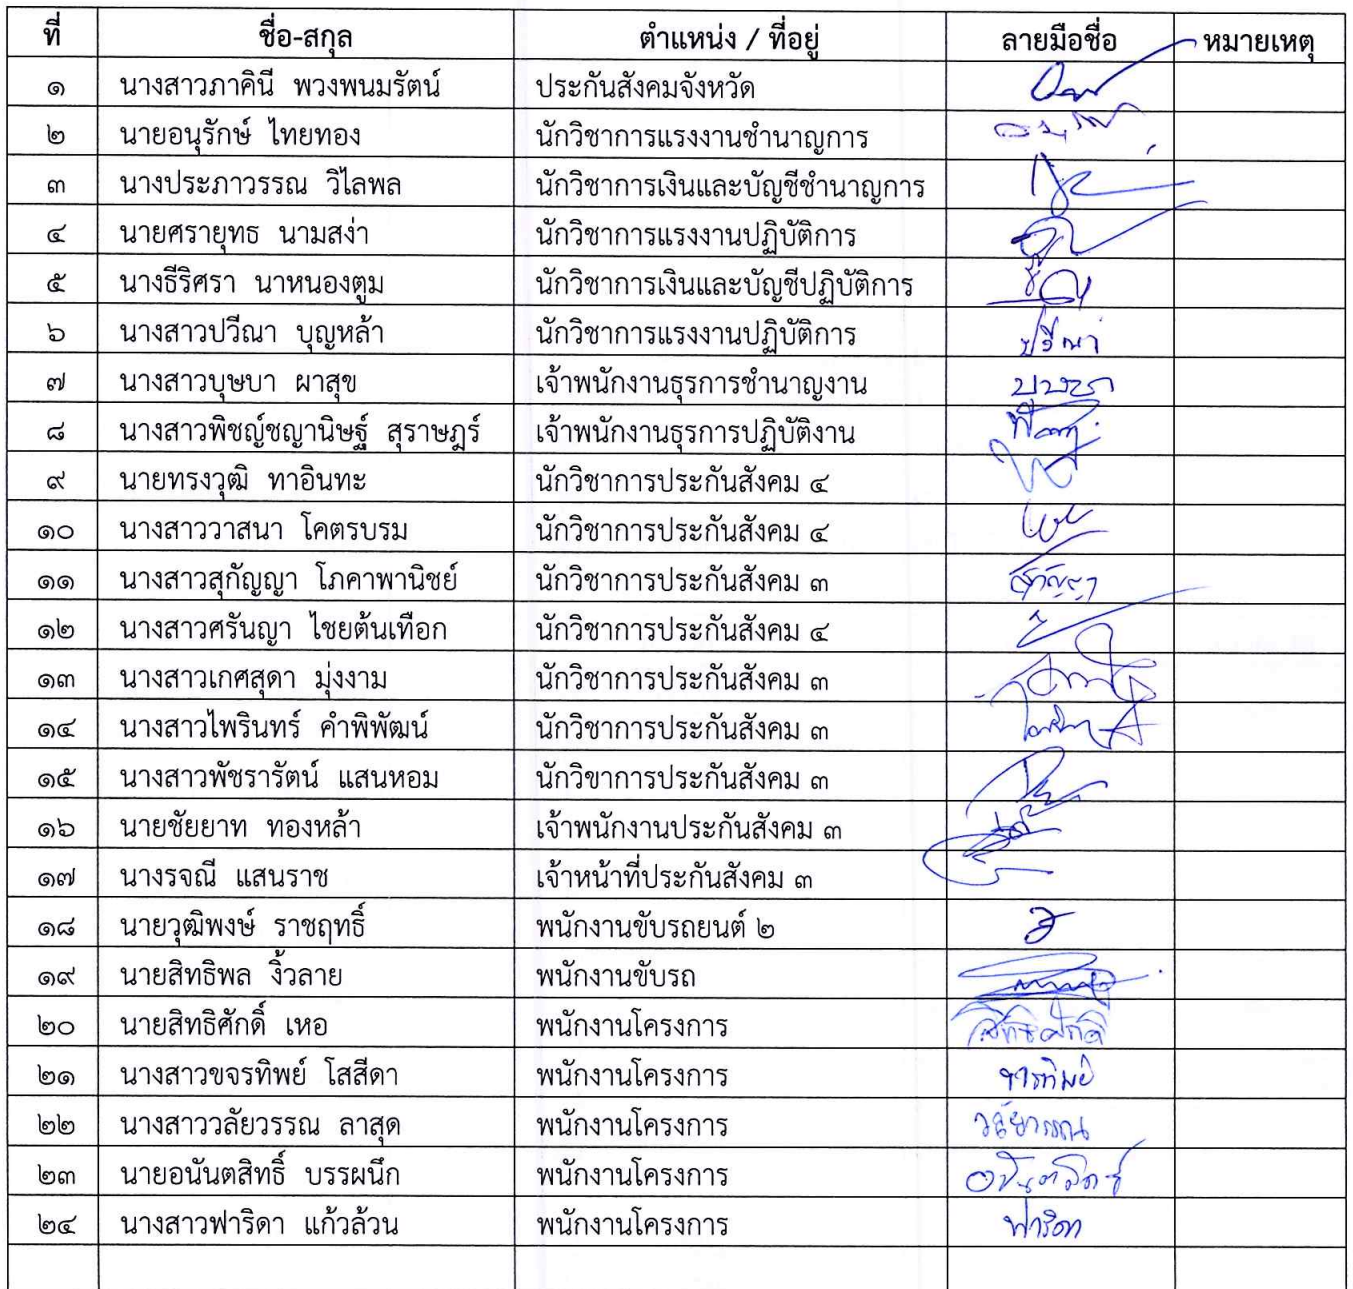 ที่ ชื่อ-สกุล ตำแหน่ง / ที่อยู่ ลายมือชื่อ หมายเหตุ
๑ นางสาวภาคินี พวงพนมรัตน์ ประกันสังคมจังหวัด
๒ นายอนุรักษ์ ไทยทอง นักวิชาการแรงงานชำนาญการ
๓ นางประภาวรรณ วิไลพล นักวิชาการเงินและบัญชีชำนาญการ
๔ นายศรายุทธ นามสง่า นักวิชาการแรงงานปฏิบัติการ
๕ นางธีริศรา นาหนองตูม นักวิชาการเงินและบัญชีปฏิบัติการ
๖ นางสาวปวีณา บุญหล้า นักวิชาการแรงงานปฏิบัติการ ปวีณา
๗ นางสาวบุษบา ผาสุข เจ้าพนักงานธุรการชำนาญงาน บุษบา
๘ นางสาวพิชญ์ชญานิษฐ์ สุราษฎร์ เจ้าพนักงานธุรการปฏิบัติงาน
๙ นายทรงวุฒิ ทาอินทะ นักวิชาการประกันสังคม ๔
๑๐ นางสาววาสนา โคตรบรม นักวิชาการประกันสังคม ๔
๑๑ นางสาวสุกัญญา โภคาพานิชย์ นักวิชาการประกันสังคม ๓
๑๒ นางสาวศรันญา ไชยต้นเทือก นักวิชาการประกันสังคม ๔
๑๓ นางสาวเกศสุดา มุ่งงาม นักวิชาการประกันสังคม ๓
๑๔ นางสาวไพรินทร์ คำพิพัฒน์ นักวิชาการประกันสังคม ๓
๑๕ นางสาวพัชรารัตน์ แสนหอม นักวิขาการประกันสังคม ๓
๑๖ นายชัยยาท ทองหล้า เจ้าพนักงานประกันสังคม ๓
๑๗ นางรจณี แสนราช เจ้าหน้าที่ประกันสังคม ๓
๑๘ นายวุฒิพงษ์ ราชฤทธิ์ พนักงานขับรถยนต์ ๒
๑๙ นายสิทธิพล งิ้วลาย พนักงานขับรถ
๒๐ นายสิทธิศักดิ์ เหอ พนักงานโครงการ สิทธิศักดิ์
๒๑ นางสาวขจรทิพย์ โสสีดา พนักงานโครงการ
๒๒ นางสาววลัยวรรณ ลาสุด พนักงานโครงการ วลัยวรรณ
๒๓ นายอนันตสิทธิ์ บรรผนึก พนักงานโครงการ อนันตสิทธิ์
๒๔ นางสาวฟาริดา แก้วล้วน พนักงานโครงการ ฟาริดา